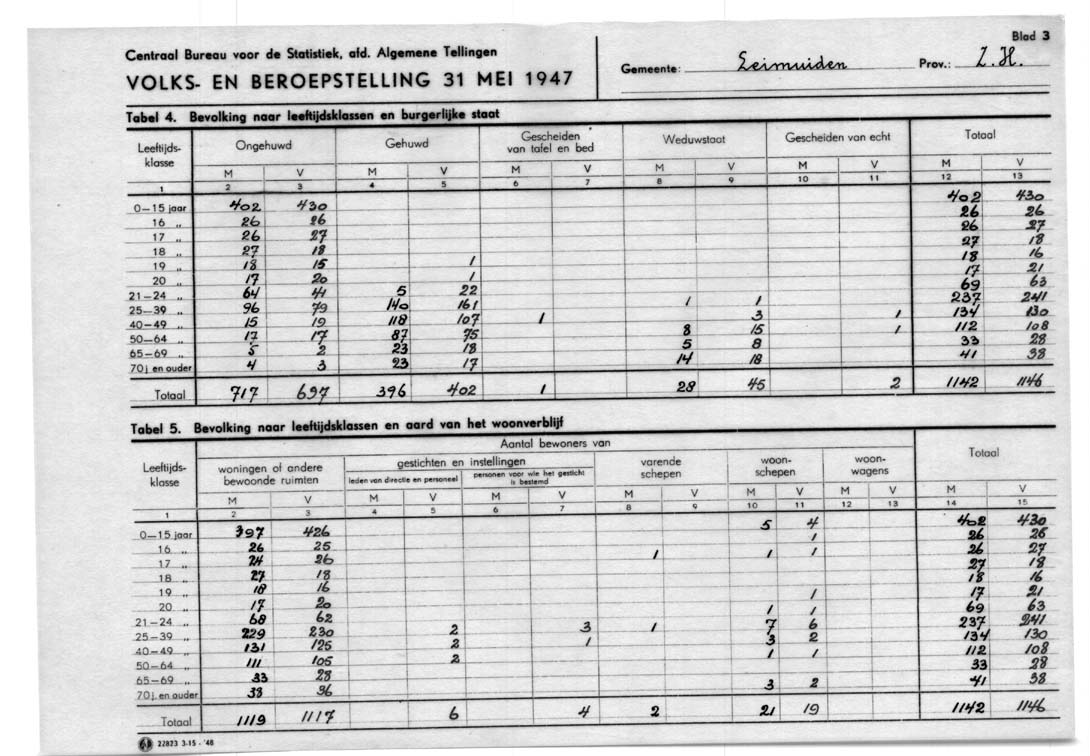 Blad 3
Centraal Bureau voor de Statistiek, afd. Algemene Tellingen
VOLKS- EN BEROEPSTELLING 31 MEI 1947
Gemeente: Leimuiden Prov.: Z.H.
Tabel 4. Bevolking naar leeftijdsklassen en burgerlijke staat
Leeftijds-klasse Ongehuwd Gehuwd Gescheiden van tafel en bed Weduwstaat Gescheiden van echt Totaal
M V M V M V M V M V M V
1 2 3 4 5 6 7 8 9 10 11 12 13
0—15 jaar 402 430 402 430
16 „ 26 26 26 26
17 „ 26 27 26 27
18 „ 27 18 27 18
19 „ 18 15 1 18 16
20 „ 17 20 1 17 21
21—24 „ 64 41 5 22 69 63
25—39 „ 96 79 140 161 1 1 237 241
40—49 „ 15 19 118 107 1 3 1 134 130
50—64 „ 17 17 87 75 8 15 1 112 108
65—69 „ 5 2 23 18 5 8 33 28
70 j. en ouder 4 3 23 17 14 18 41 38
Totaal 717 697 396 402 1 28 45 2 1142 1146
Tabel 5. Bevolking naar leeftijdsklassen en aard van het woonverblijf
Aantal bewoners van
Leeftijds-klasse woningen of andere bewoonde ruimten gestichten en instellingen varende schepen woon-schepen woon-wagens Totaal
leden van directie en personeel personen voor wie het gesticht is bestemd
M V M V M V M V M V M V M V
1 2 3 4 5 6 7 8 9 10 11 12 13 14 15
0—15 jaar 397 426 5 4 402 430
16 „ 26 25 1 26 26
17 „ 24 26 1 1 1 26 27
18 „ 27 18 27 18
19 „ 18 16 18 16
20 „ 17 20 1 17 21
21—24 „ 68 62 1 1 69 63
25—39 „ 229 230 2 3 1 7 6 237 241
40—49 „ 131 125 2 1 3 2 134 130
50—64 „ 111 105 2 1 1 112 108
65—69 „ 33 28 33 28
70 j. en ouder 38 36 3 2 41 38
Totaal 1119 1117 6 4 2 21 19 1142 1146
22823 3-15 - '48